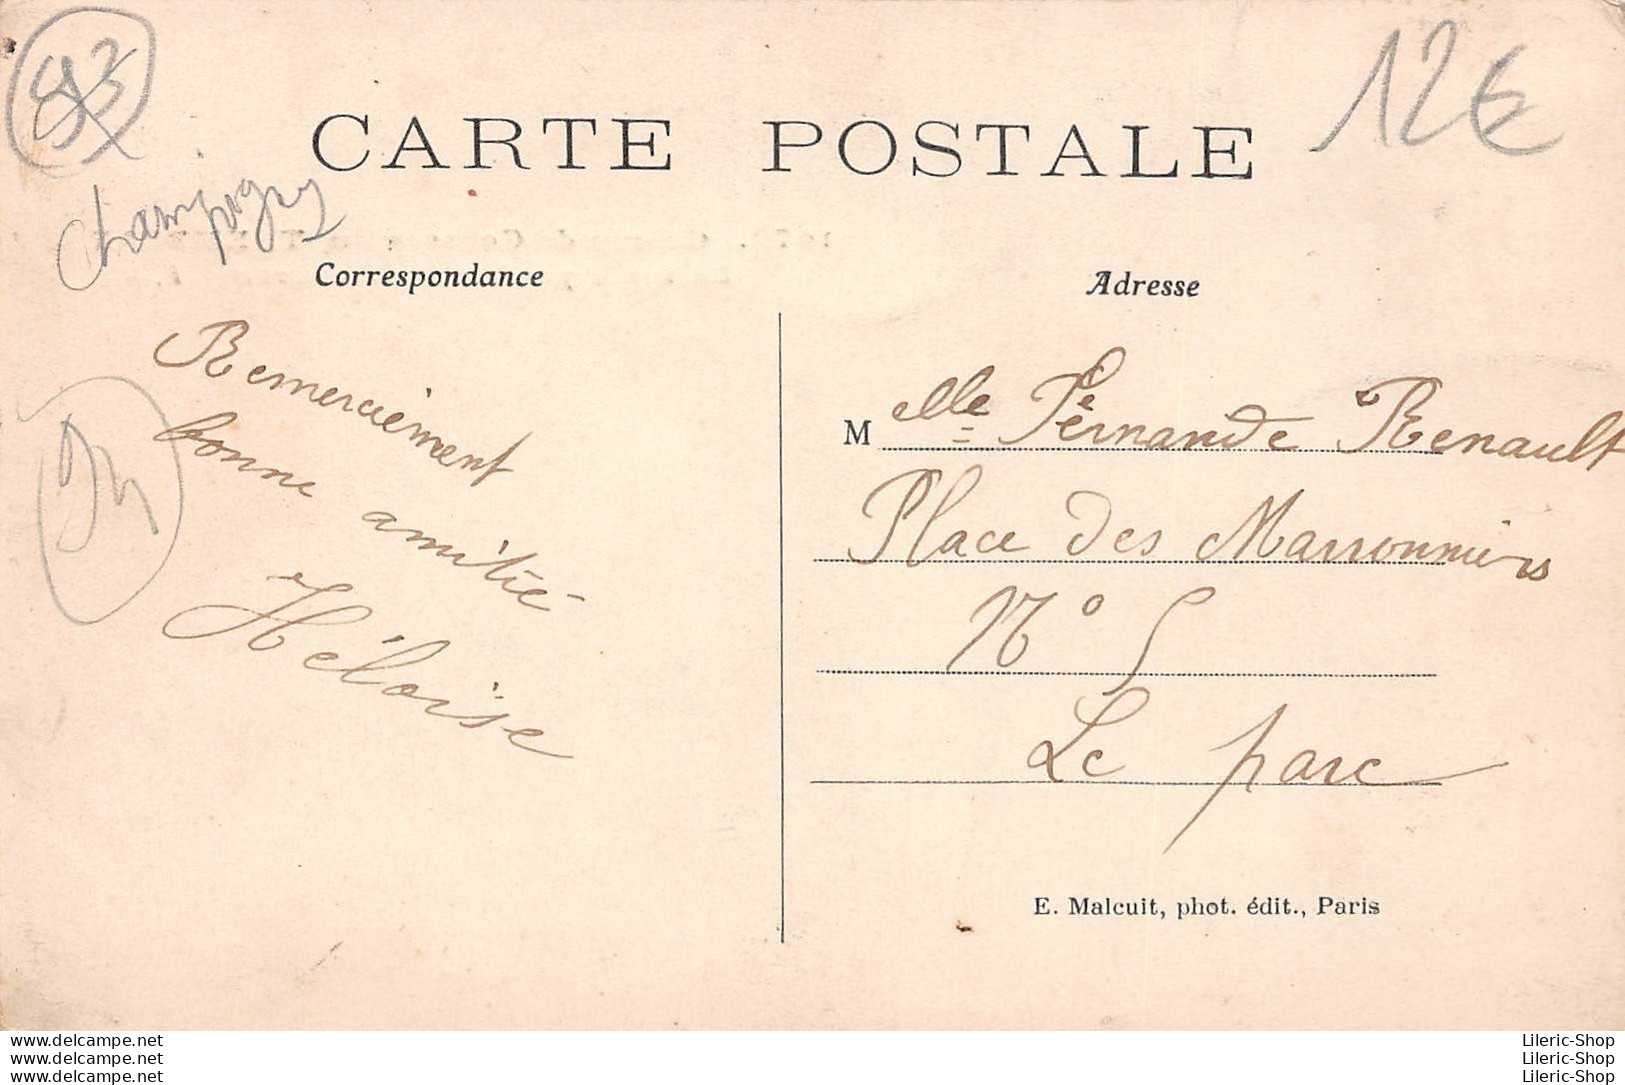 93
12€
CARTE POSTALE
Champigny
Correspondance
Adresse
Remerciement
bonne amitié
Héloïse
94
Melle Fernande Renault
Place des Marronniers
N° 5
Le parc
E. Malcuit, phot. édit., Paris
www.delcampe.net
www.delcampe.net
www.delcampe.net
Lileric-Shop
Lileric-Shop
Lileric-Shop